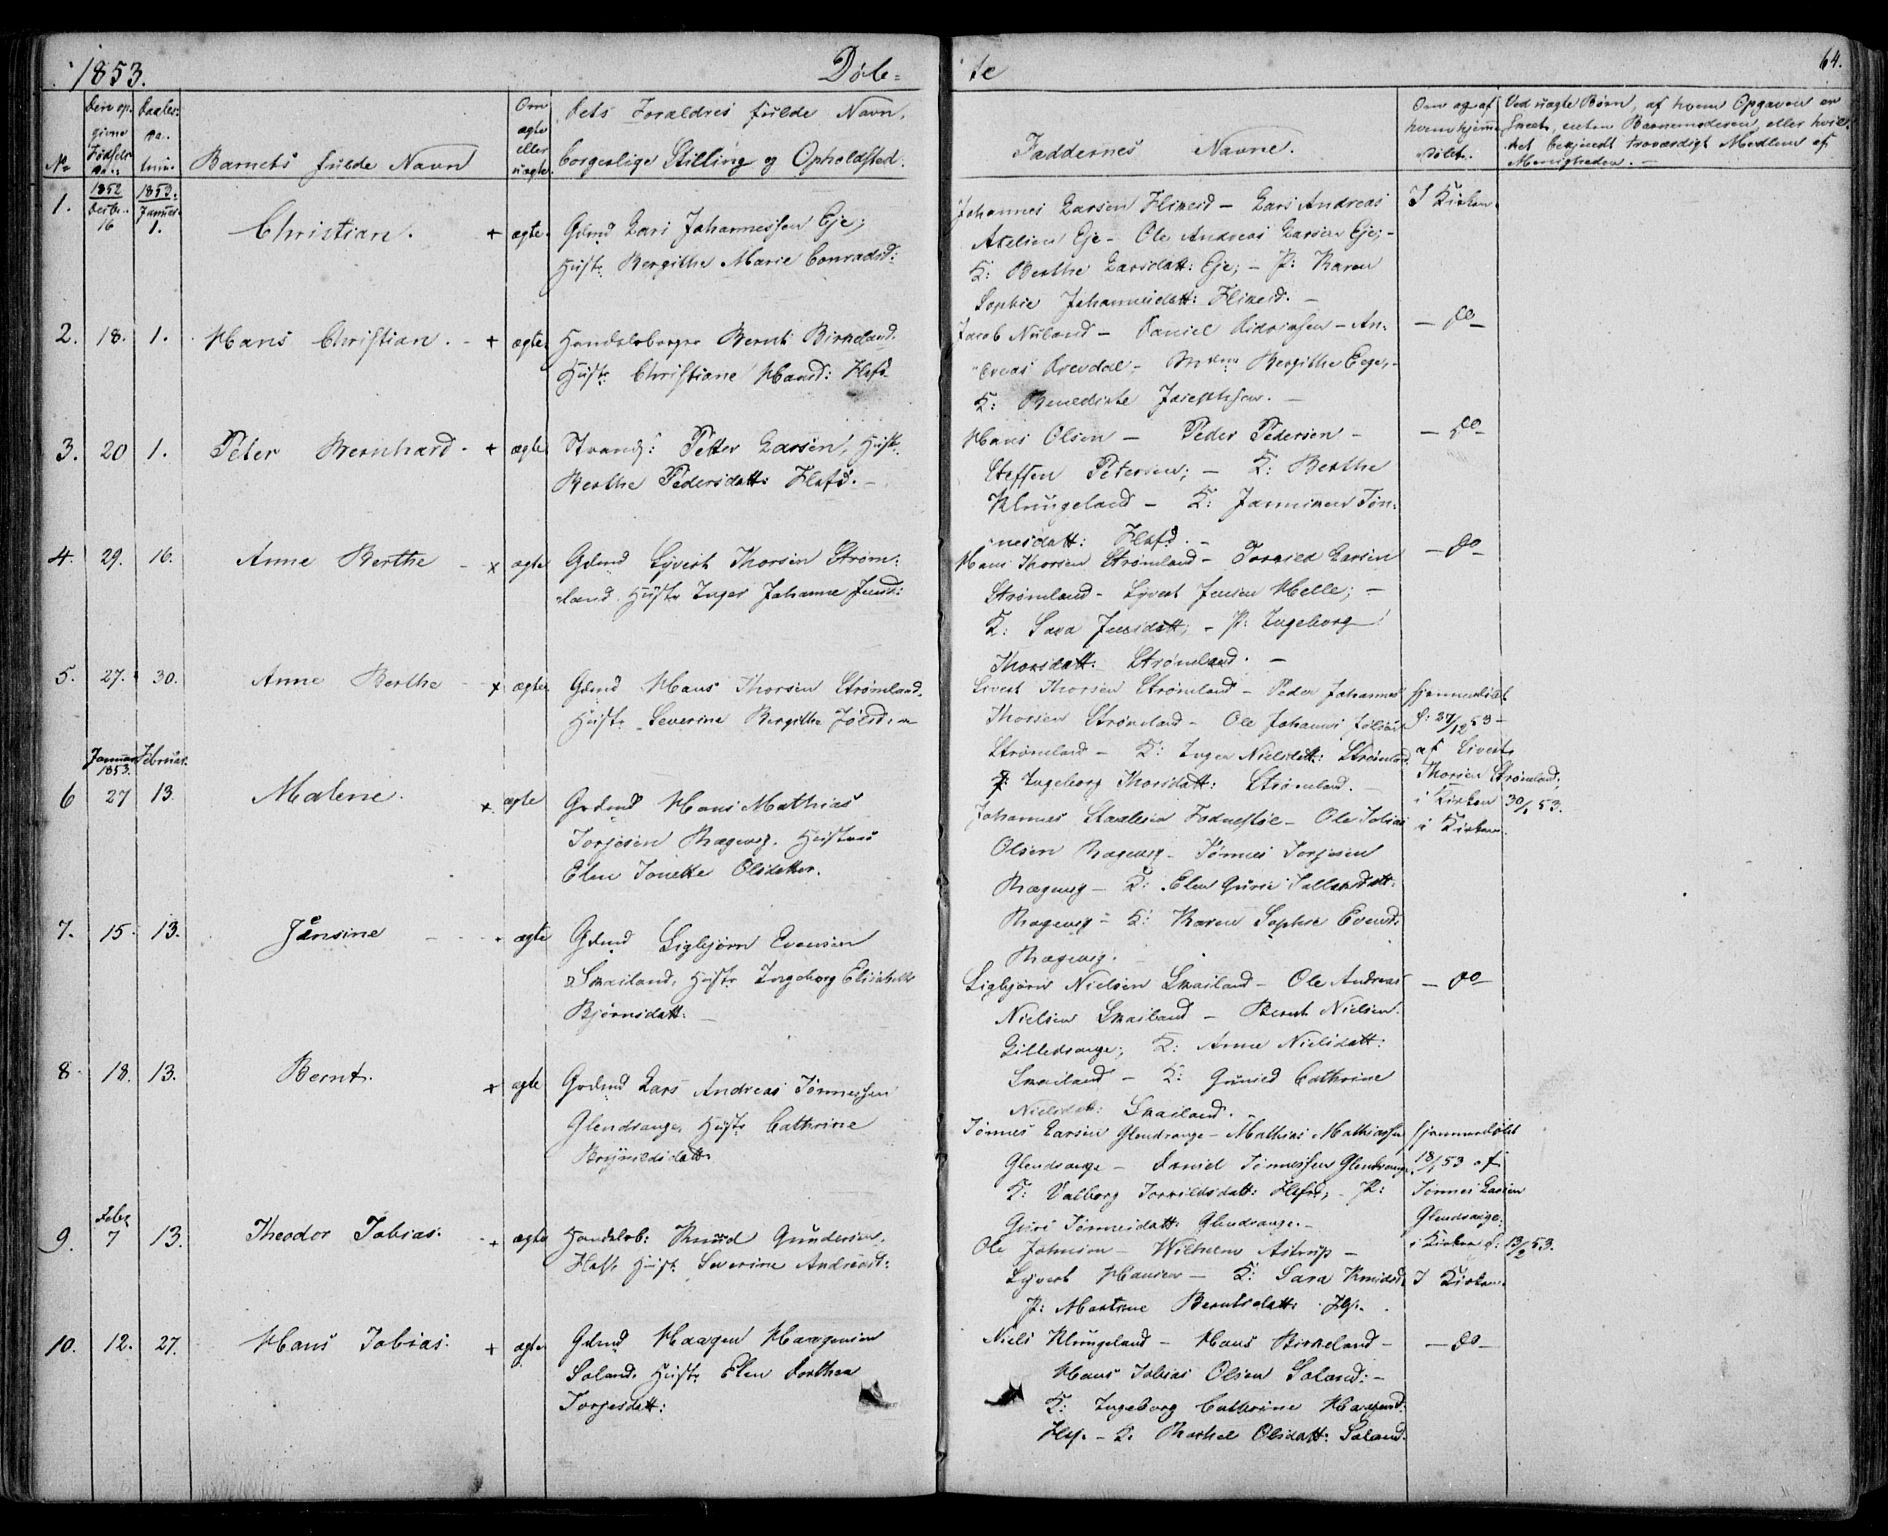 1853.
Døb-
te
64.
No
Barnets fulde Navn
Om
ægte
eller
uægte
Dets Forældres fulde Navn,
borgerlige Stilling og Opholdsted.
Faddernes Navne.
Om og af
hvem hjemme-
døbt.
Ved uægte Børn, af hvem Opgaven er
skeet, enten Barnemoderen, eller hvil-
ket bekjendt troværdigt Medlem af
Menigheden. -
1. 1852 Decbr. 16 1853. Januar 1. Christian. + ægte.
Gdmd Lars Johannessen Eje;
Hustr. Bergithe Marie Conradsd:
Johannes Larsen Flikeid - Lars Andreas
Axelsen Eje - Ole Andreas Larsen Eje; -
K: Berthe Larsdatt: Eje; - P: Karen
Sophie Johannesdatt: Flikeid. -
I Kirken
2. 18. 1. Hans Christian. - + ægte
Handelsborger Bernt Birkeland.
Hustr. Christiane Hansd: Flkfd
Jacob Nuland - Daniel Didriksen - An-
dreas Drevdal - Bergithe Eeg; -
K: Benedicte Josephsen. -
- do -
3. 20 1. Peter Bernhard - + ægte
Strands: Petter Larsen, Hustr.
Berthe Pedersdatt: Flkfd. -
Hans Olsen - Peder Pedersen -
Steffen Petersen; - K: Berthe
Klungeland - K: Janniken Tøn-
nesdatt: Flkfd. -
- do -
4. 29. 16. Anne Berthe - x ægte
Gdmd Syvert Thorsen Strøm-
land. Hustr Inger Johanne Jensd:
Hans Thorsen Strømland - Torkild Larsen
Strømland - Syvert Jensen Helle; -
K: Sara Jensdatt; - P: Ingeborg
Thorsdatt: Strømland. -
- do -
5. 27. 30. Anne Berthe - x ægte
Gdmd Hans Thorsen Strømland.
Hustr. Severine Bergithe
Sivert Thorsen Strømland - Peder Johannes
Thorsen Strømland - Ole Johannes
Strømland - K: Inger Nielsdatt: Strømland.
P: Ingeborg Thorsdatt: Strømland. -
hjemmedøbt
d: 27/12 53 -
af Sivert
Thorsen Strømland,
i Kirken 30/1 53.
Januar 1853. Februar.
6 27 13. Malene. x. ægte
Grdmd Hans Mathias
Torjesen Rægevig. Hustru
Elen Tonette Olsdatter.
Johannes Ståleson - Ole Tobias
Olsen Rægevig - Tønnes Torjesen
Rægevig - K: Elen Gurie
Rægevig - K: Karen Sophie Evensd:
Rægevig.
i Kirken
7. 15. 13. Jånsine - ægte
Gdmd Sigbjørn Evensen
Skailand, Hustr Ingeborg Elisabeth
Bjørnsdatt. -
Sigbjørn Nielsen Skailand - Ole Andreas
Nielsen Skailand - Bernt Nielsen
K: Anne Nielsdatt:
Skailand - K: Gunild Cathrine
Nielsdatt: Skailand.
- do -
8 18. 13. Bernt. x ægte
Grdmd Lars Andreas Tønnessen
Glendrange, Hustr Cathrine
Brynildsdatt
Tønnes Larsen Glendrange - Mathias Mathiassen
Glendrange - Daniel Tønnessen Glendrange.
K: Valborg Torkildsdatt: Flkfd; - P:
Guri Tønnesdatt: Glendrange. -
hjemmedøbt
18/1 53 af
Tønnes Larsen
Glendrange;
i Kirken d: 13/2 53.
9. Febr 7 13. Theodor Tobias. + ægte
Handelsb: Knud Gundersen.
Flkfd Hustr. Severine Andreasd:
Ole Johnsen - Wilhelm Astrup -
Syvert Hansen - K: Sara Knudsd.
P: Martine Berntsdatt:
I Kirken
10. 12. 27. Hans Tobias. + ægte
Gdmd Haagen Haagensen
Soland. Hustr Elen Dorthea
Torjesdatt:
Niels Klungeland - Hans Birkeland -
Hans Tobias Olsen Soland: -
K: Ingeborg Cathrine Haagensd:
K: Rachel Olsdatt: Soland.
- do -